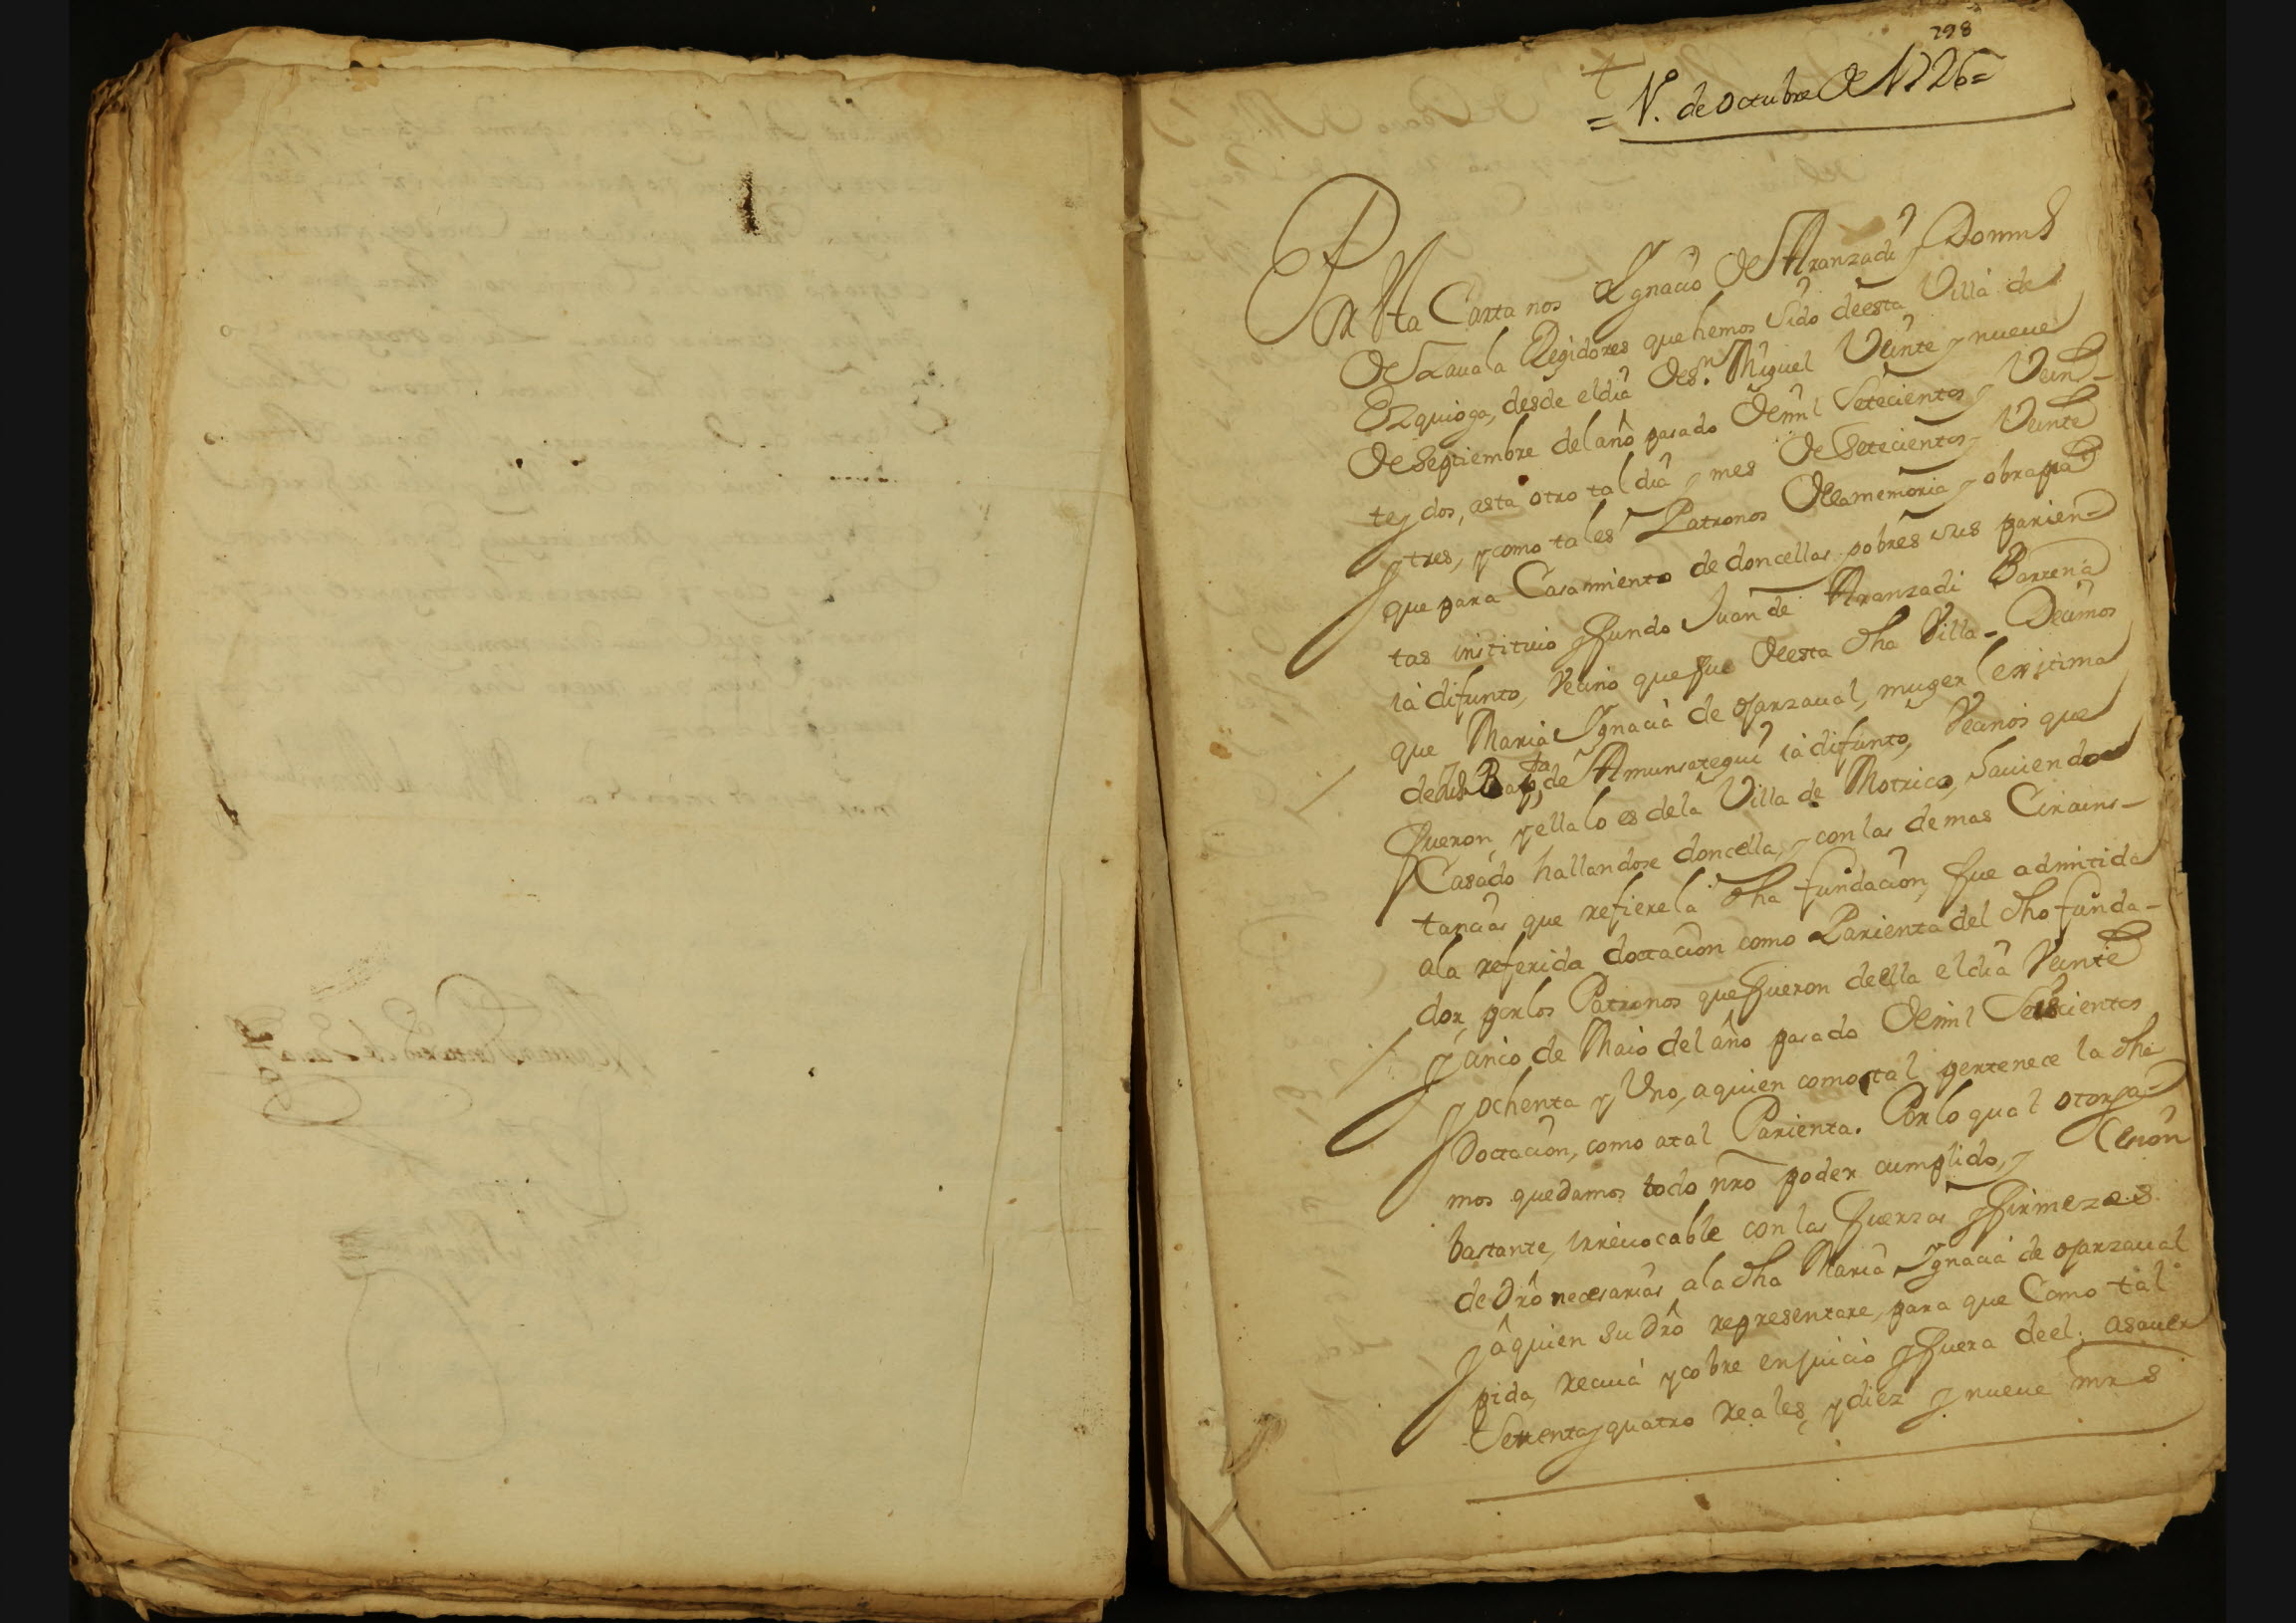 298
= 1º. de octubre de 1726=
Por esta Carta nos Ygnacio de Aranzadi y Domin.
de Zauala Regidores que hemos sido deesta Villa de
Ezquioga, desde el dia de Sn. Miguel Veinte y nueue
de Septiembre del año pasado de mil Setecientos y Vein-
te y dos, asta otro tal dia y mes de Setecientos y Veinte
y tres, y como tales Patronos de la memoria y obra pia
que para Casamiento de doncellas pobres sus parien-
tas instituio y fundo Juan de Aranzadi Barrena
ia difunto, Vecino que fue de esta dha Villa- Decimos
que Maria Ygnacia de oyarzaual, muger lexitima
de Bapta. de Amunsategui ia difunto, Vecinos que
fueron, y ella lo es de la Villa de Motrico, hauiendo
Casado hallandose doncella, y con las demas Circuns-
tancias que refiere la dha fundacion, fue admitida
a la referida dottacion como Parienta del dho funda-
dor, por los Patronos que fueron deella el dia Veinte
y cinco de Maio del año pasado de mil Seiscientos
y ochenta y Uno, a quien como tal pertenece la dha
Dottacion, como a tal Parienta. Por lo qual otorga-
mos que damos todo nro poder cumplido, y lleno
bastante, irreuocable con las fuerzas y firmezas
de dro necesarias a la dha Maria Ygnacia de oyarzaual
y â quien su dro representare, para que Como tal
pida, reciua y cobre en juicio y fuera de el. asauer
Setenta y quatro reales, y diez y nueue mrs